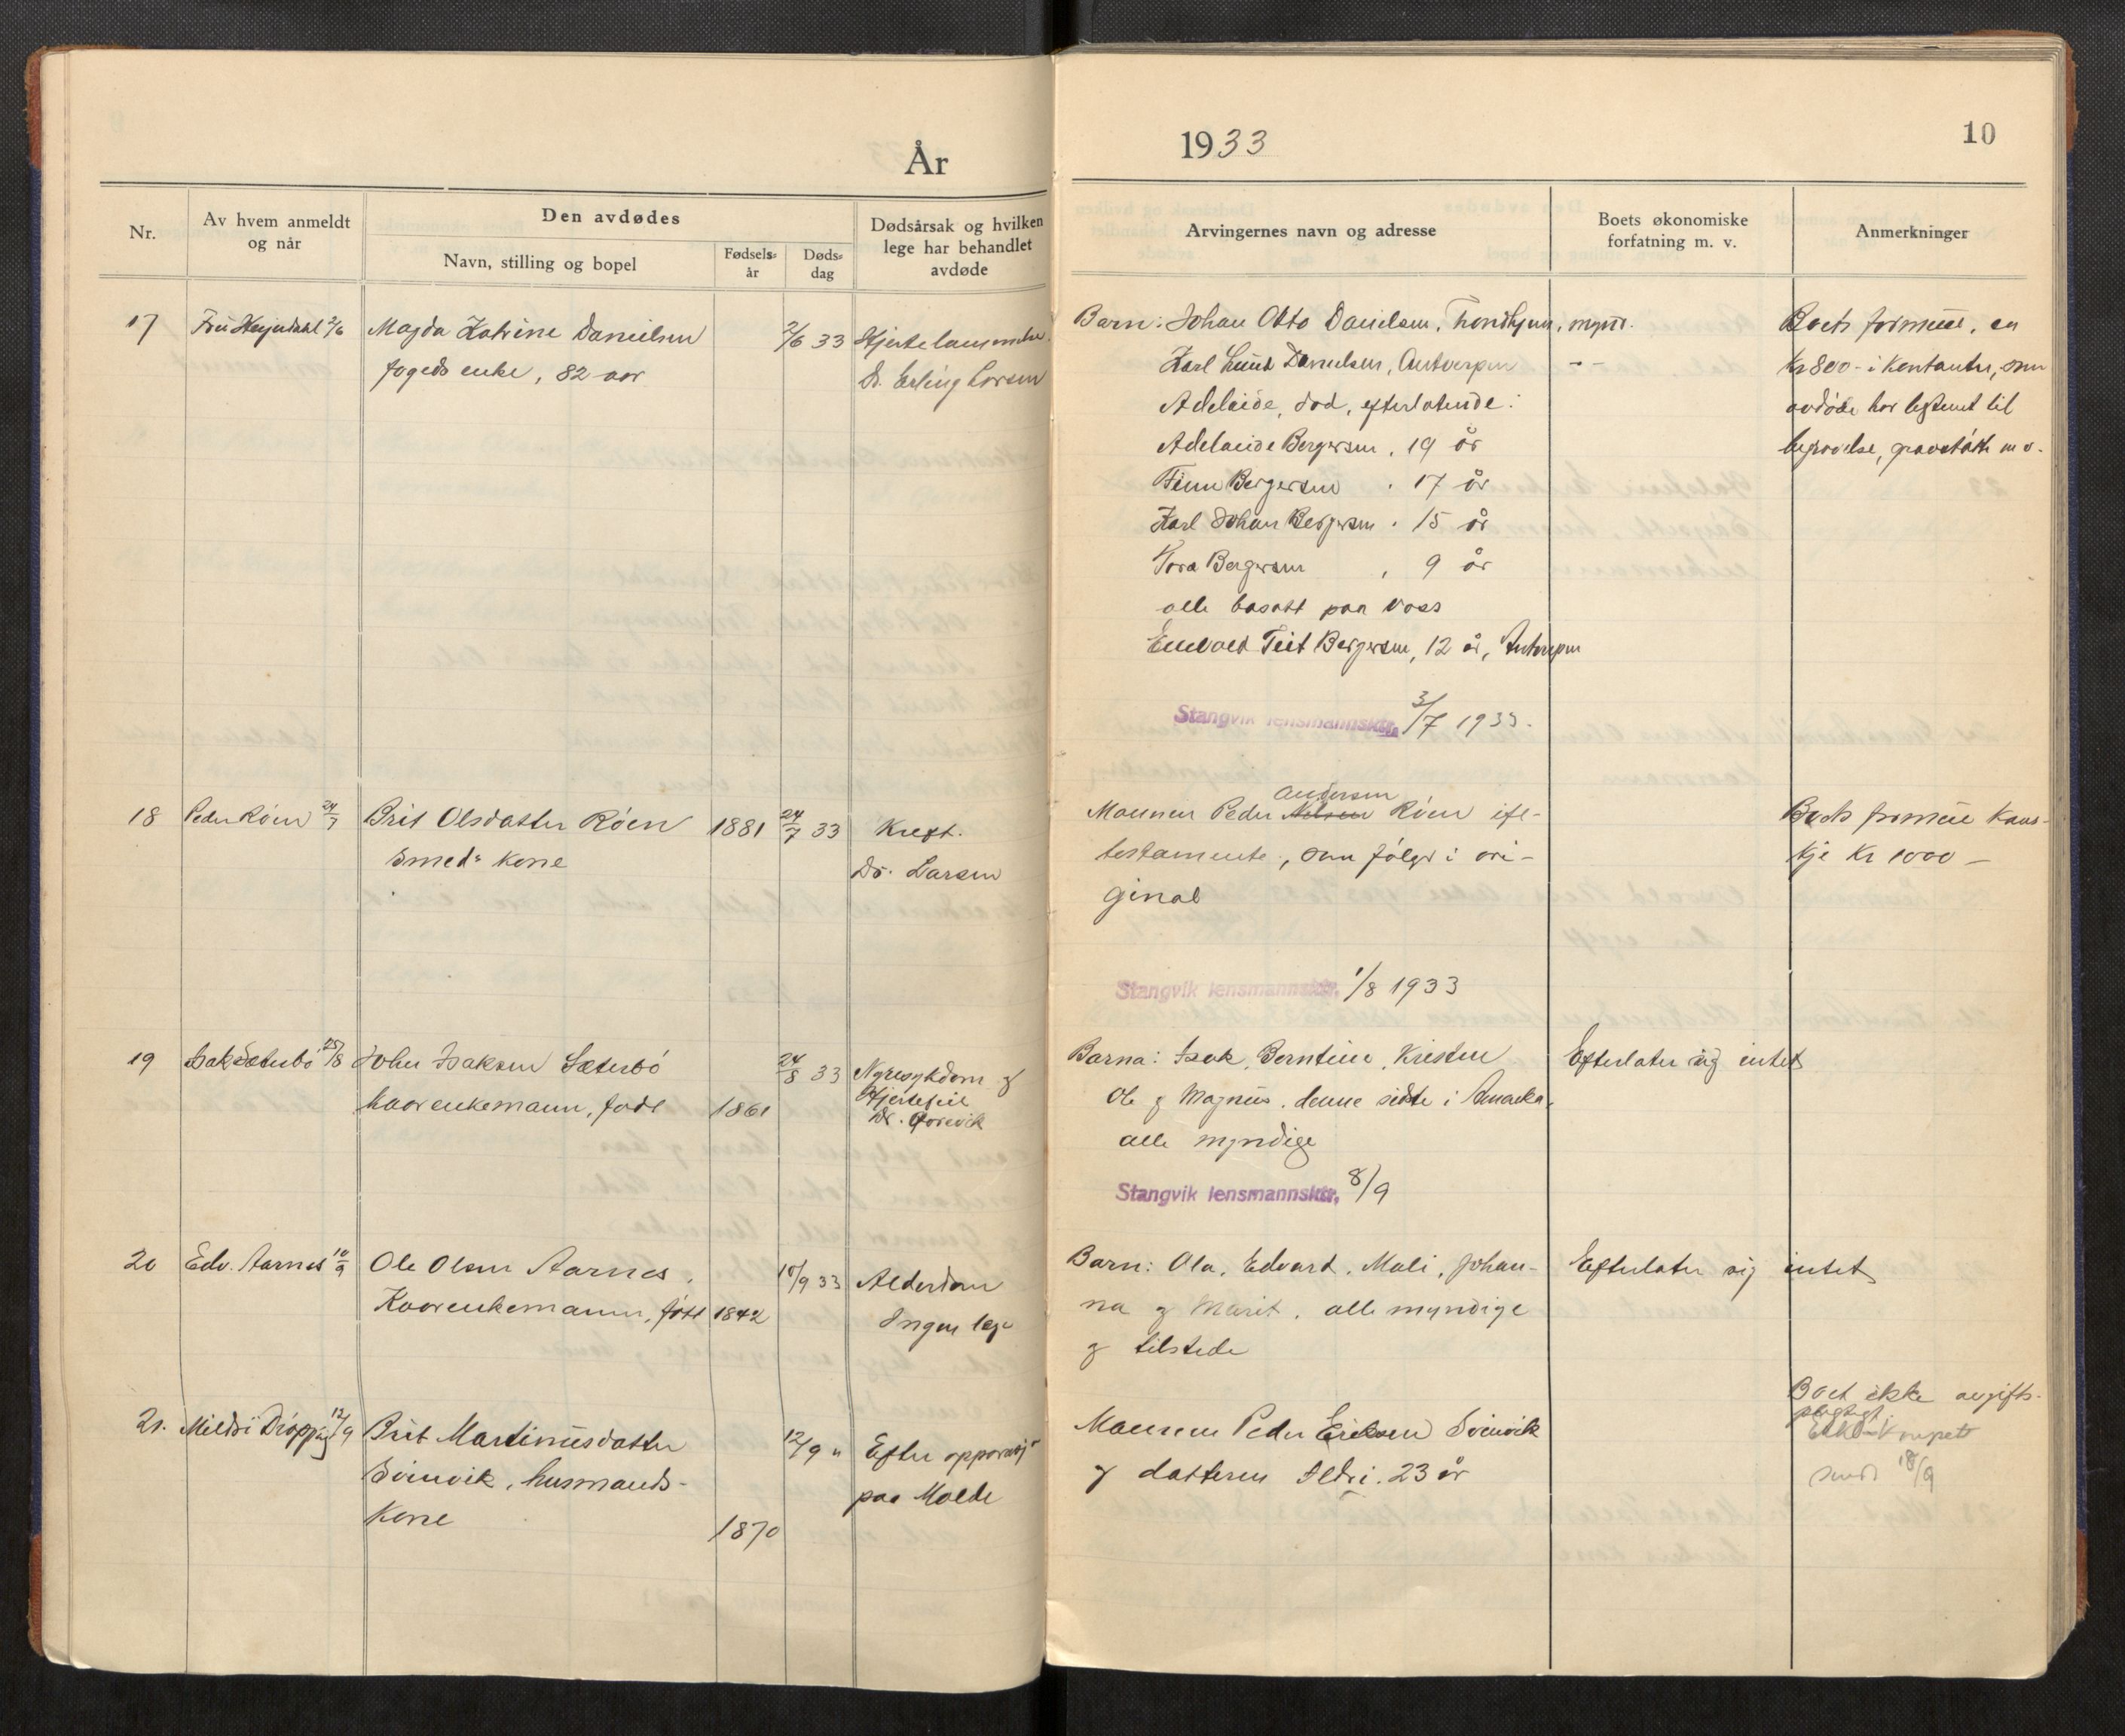 År
1933
10
Nr.
Av hvem anmeldt
og når
Den avdødes
Navn, stilling og bopel
Fødsels-
år
Døds-
dag
Dødsårsak og hvilken
lege har behandlet
avdøde
Arvingernes navn og adresse
Boets økonomiske
forfatning m. v.
Anmerkninger
17
Fru 2/6
Magda Katrine Danielsen
fogeds enke, 82 aar
2/6 33
Dr. Erling Larsen
Barn: Johan Otto Danielsen, Trondhjem, mynd.
Karl Lund Danielsen, Antverpen - -
Adelaide, død, efterlatende:
Adelaide Bergersen, 19 år
Finn Bergersen, 17 år
Karl Johan Bergersen, 15 år
Tora Bergersen, 9 år
alle bosatt paa Voss
Teit Bergersen, 12 år, Antverpen
Boets formue, ca
Kr 800- i Kontanter, som
avdøde har bestemt til
begravelse, gravstøtte m v.
Stangvik lensmannsktr. 3/7 1933.
18
Peder Røen 24/7
Brit Olsdatter Røen
Smeds Kone
1881
24/7 33
Kreft.
Dr. Larsen
Andersen
Mannen Peder Nilsen Røen ifl-
testamente, som følger i ori-
ginal
Boets formue kans-
kje Kr 1000 —
Stangvik lensmannsktr. 1/8 1933
19
Isak Sæterbø 25/8
John Isaksen Sæterbø
kaarenkemann, født
1861
24/8 33
Nyresykdom og
Hjertefeil
Dr.
Barna: Isak, Berntine, Kristen
Ole og Magnus, denne sidste i Amerika,
alle myndige
Efterlater sig intet
Stangvik lensmannsktr. 8/9
20
Edv. Aarnes 10/9
Ole Olsen Aarnes,
Kaarenkemann, født
1842
10/9 33
Alderdom
Ingen læge
Barn: Ola, Edvard, Mali, Johan-
na og Marit, alle myndige
og tilstede
Efterlater sig intet
21.
Mildri 12/9
Brit Martinusdatter
Svinvik, husmands-
Kone
1870
12/9 "
Efter
paa Molde
Mannen Peder Eriksen Svinvik
og datteren Ildri, 23 år
Boet ikke avgifts-
pligtigt.
sendt 18/9